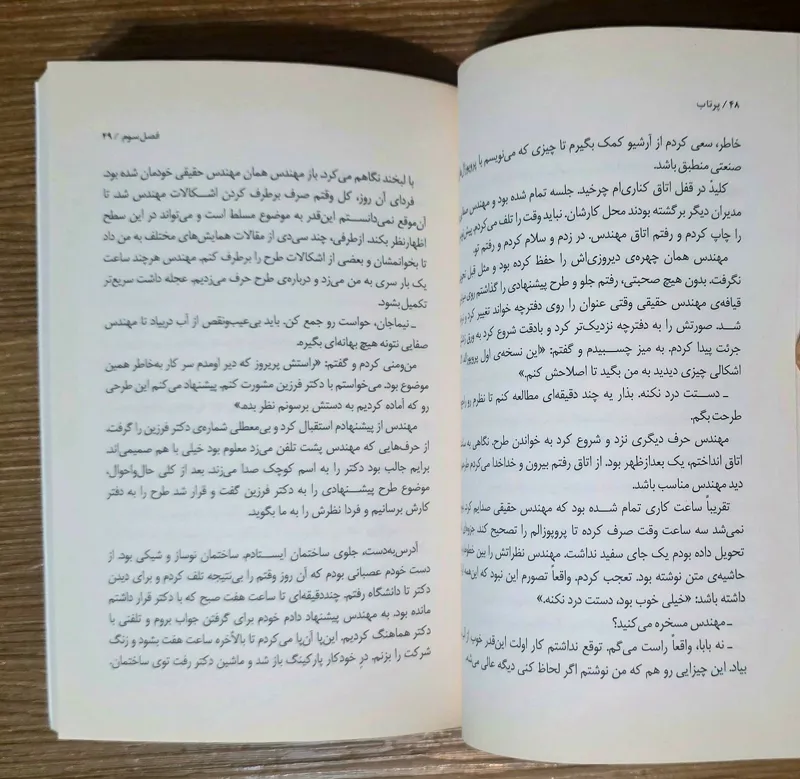 ۴۸ / پرتاب
خاطر، سعی کردم از آرشیو کمک بگیرم تا چیزی که می‌نویسم با
صنعتی منطبق باشد.
کلید در قفل اتاق کناری‌ام چرخید. جلسه تمام شده بود و مهندس
مدیران دیگر برگشته بودند محل کارشان. نباید وقت را تلف می‌کردم.
را چاپ کردم و رفتم اتاق مهندس. در زدم و سلام کردم و رفتم تو.
مهندس همان چهره‌ی دیروزی‌اش را حفظ کرده بود و مثل قبل
نگرفت. بدون هیچ صحبتی، رفتم جلو و طرح پیشنهادی را گذاشتم روی
قیافه‌ی مهندس حقیقی وقتی عنوان را روی دفترچه خواند تغییر کرد و
شد. صورتش را به دفترچه نزدیک‌تر کرد و بادقت شروع کرد به ورق
جرئت پیدا کردم. به میز چسبیدم و گفتم: «این نسخه‌ی اول
اشکالی چیزی دیدید به من بگید تا اصلاحش کنم.»
ـ دستت درد نکنه. بذار یه چند دقیقه‌ای مطالعه کنم تا نظرم رو
طرحت بگم.
مهندس حرف دیگری نزد و شروع کرد به خواندن طرح. نگاهی به
اتاق انداختم، یک بعدازظهر بود. از اتاق رفتم بیرون و خداخدا می‌کردم
دید مهندس مناسب باشد.
تقریباً ساعت کاری تمام شده بود که مهندس حقیقی صدایم کرد.
نمی‌شد سه ساعت وقت صرف کرده تا پروپوزالم را تصحیح کند.
تحویل داده بودم یک جای سفید نداشت. مهندس نظراتش را بین
حاشیه‌ی متن نوشته بود. تعجب کردم. واقعاً تصورم این نبود که این‌همه
داشته باشد: «خیلی خوب بود، دستت درد نکنه.»
ـ مهندس مسخره می‌کنید؟
ـ نه بابا، واقعاً راست می‌گم. توقع نداشتم کار اولت این‌قدر خوب از
بیاد. این چیزایی رو هم که من نوشتم اگر لحاظ کنی دیگه عالی می‌شه.
فصل سوم / ۴۹
با لبخند نگاهم می‌کرد. باز مهندس همان مهندس حقیقی خودمان شده بود.
فردای آن روز، کل وقتم صرف برطرف کردن اشکالات مهندس شد. تا
آن‌موقع نمی‌دانستم این‌قدر به موضوع مسلط است و می‌تواند در این سطح
اظهارنظر بکند. ازطرفی، چند سی‌دی از مقالات همایش‌های مختلف به من داد
تا بخوانمشان و بعضی از اشکالات طرح را برطرف کنم. مهندس هرچند ساعت
یک بار سری به من می‌زد و درباره‌ی طرح حرف می‌زدیم. عجله داشت سریع‌تر
تکمیل بشود.
ـ نیماجان، حواست رو جمع کن. باید بی‌عیب‌ونقص از آب دربیاد تا مهندس
صفایی نتونه هیچ بهانه‌ای بگیره.
من‌ومنی کردم و گفتم: «راستش پریروز که دیر اومدم سر کار به‌خاطر همین
موضوع بود. می‌خواستم با دکتر فرزین مشورت کنم. پیشنهاد می‌کنم این طرحی
رو که آماده کردیم به دستش برسونم نظر بده.»
مهندس از پیشنهادم استقبال کرد و بی‌معطلی شماره‌ی دکتر فرزین را گرفت.
از حرف‌هایی که مهندس پشت تلفن می‌زد معلوم بود خیلی با هم صمیمی‌اند.
برایم جالب بود دکتر را به اسم کوچک صدا می‌زند. بعد از کلی حال‌واحوال،
موضوع طرح پیشنهادی را به دکتر فرزین گفت و قرار شد طرح را به دفتر
کارش برسانیم و فردا نظرش را به ما بگوید.
آدرس‌به‌دست، جلوی ساختمان ایستادم. ساختمان نوساز و شیکی بود. از
دست خودم عصبانی بودم که آن روز وقتم را بی‌نتیجه تلف کردم و برای دیدن
دکتر تا دانشگاه رفتم. چنددقیقه‌ای تا ساعت هفت صبح که با دکتر قرار داشتم
مانده بود. به مهندس پیشنهاد دادم خودم برای گرفتن جواب بروم و تلفنی با
دکتر هماهنگ کردیم. این‌پا آن‌پا می‌کردم تا بالأخره ساعت هفت بشود و زنگ
شرکت را بزنم. در خودکار پارکینگ باز شد و ماشین دکتر رفت توی ساختمان.